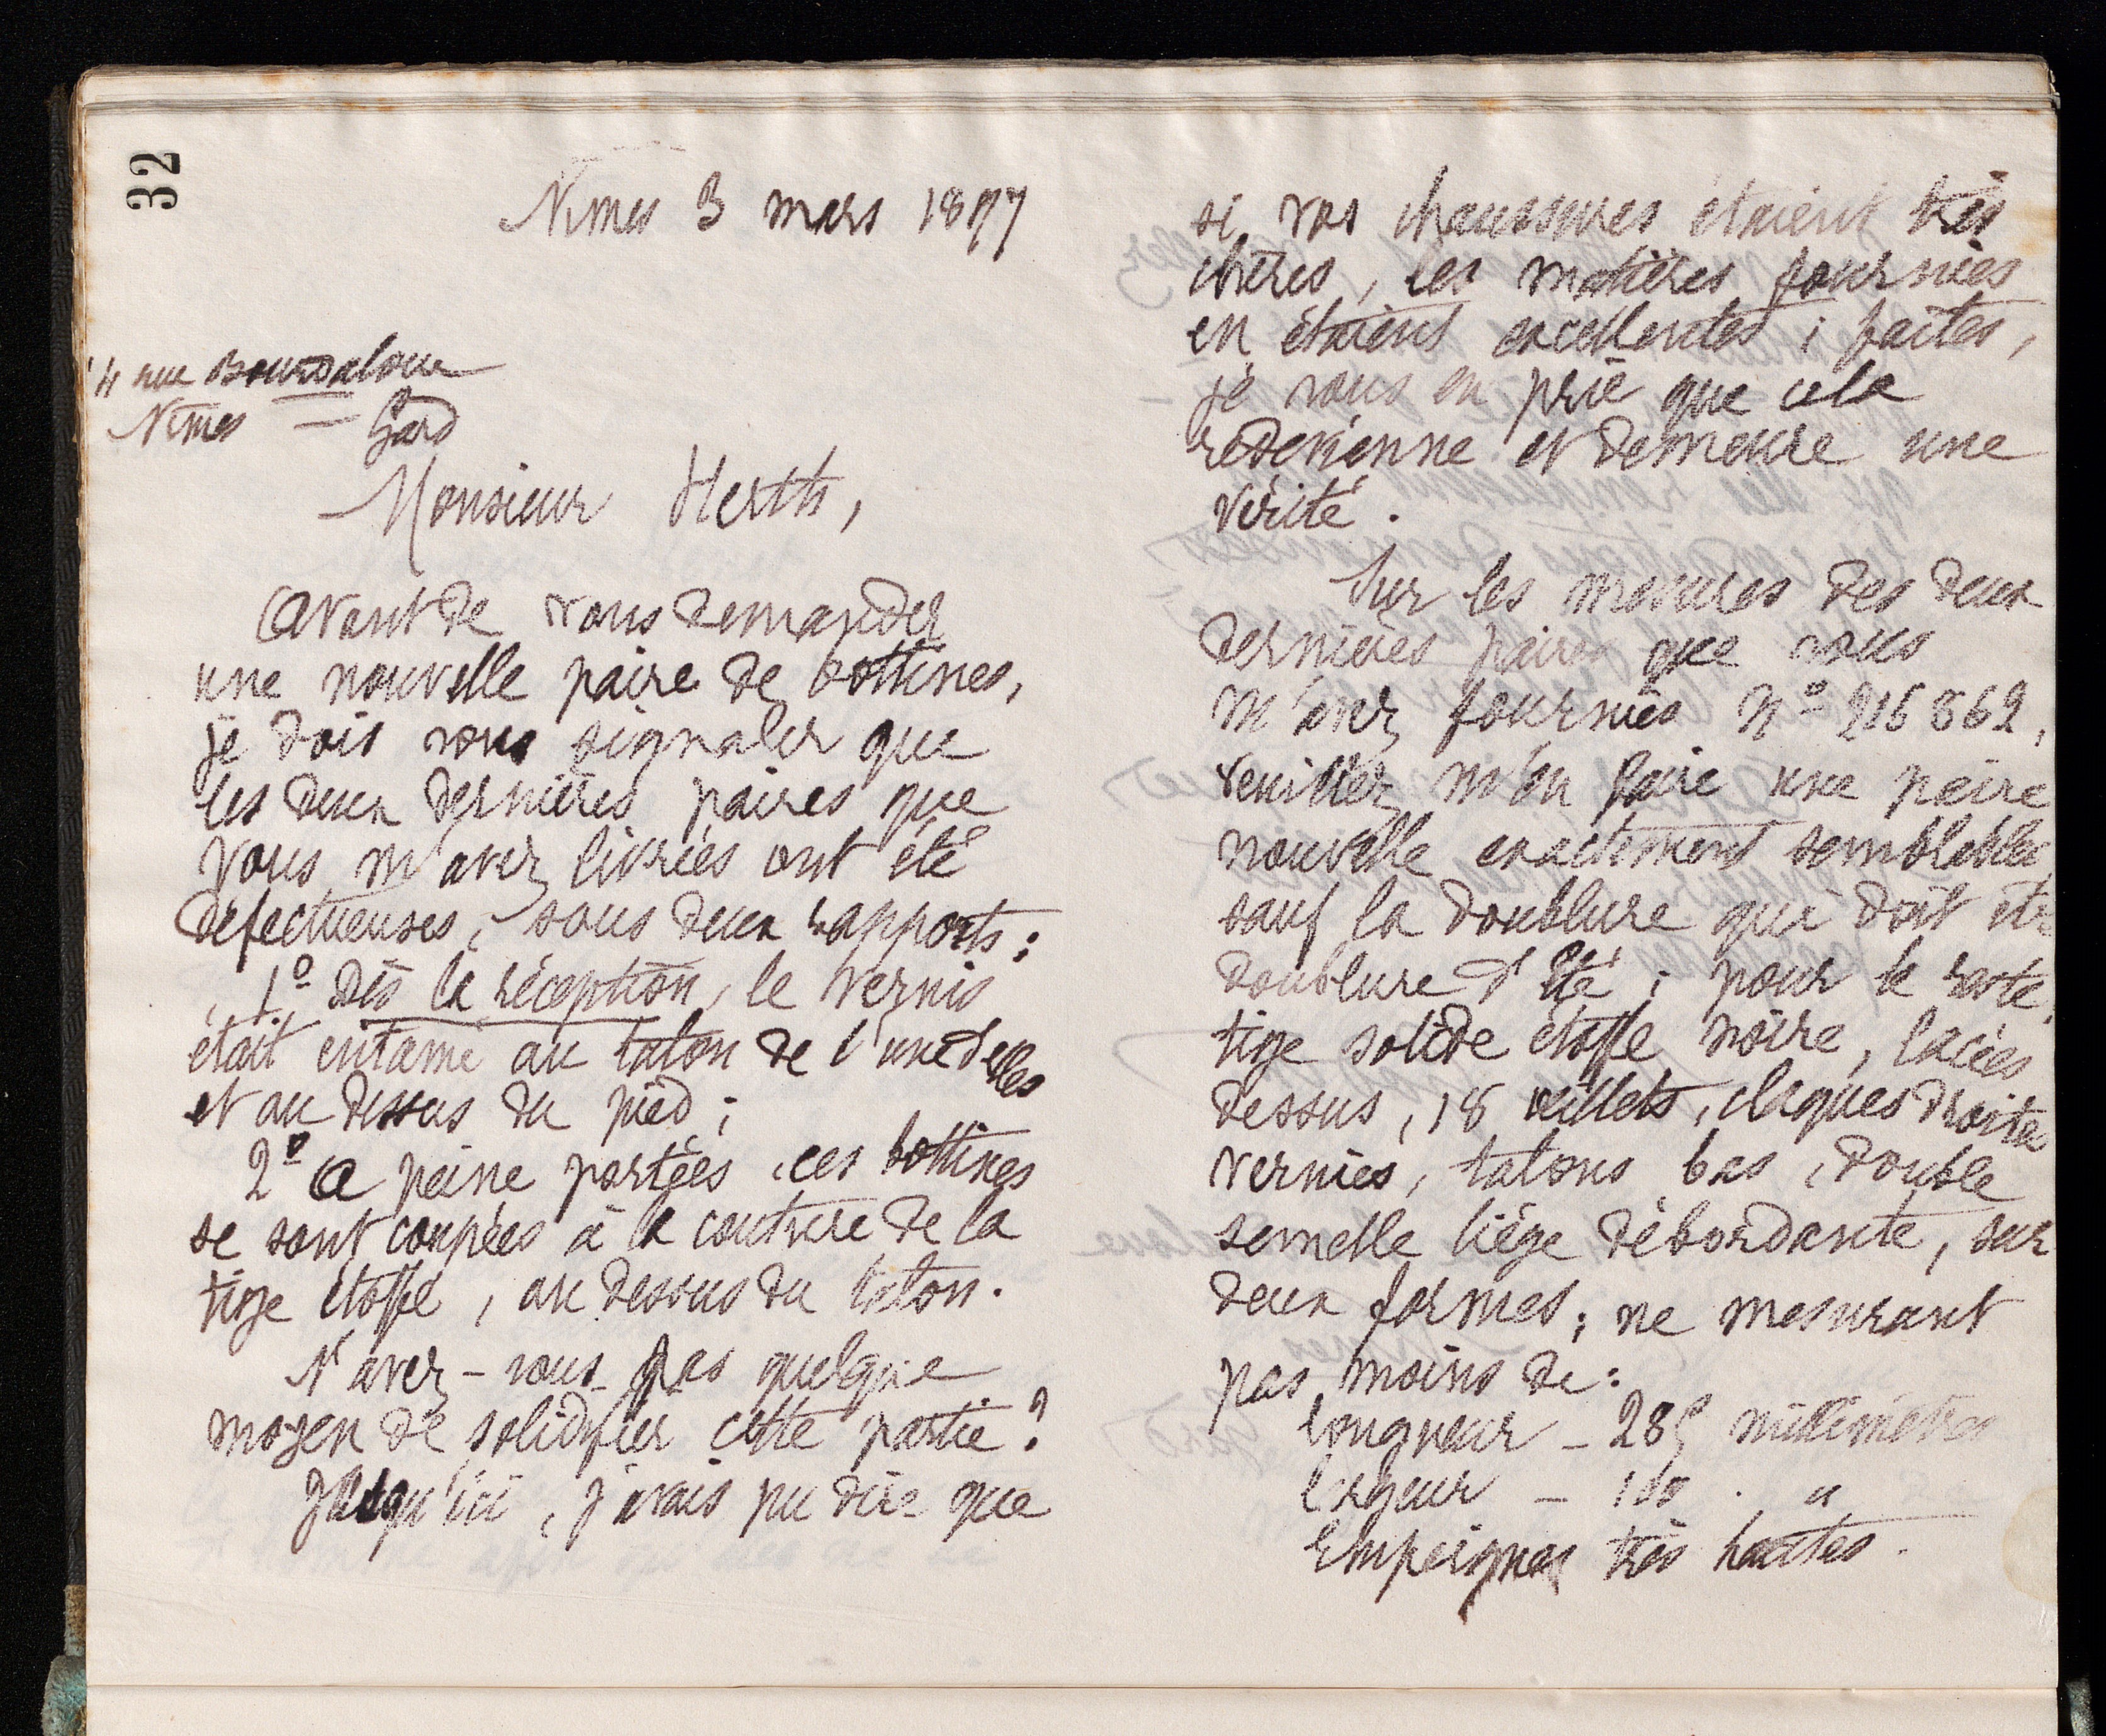 32
Nîmes 3 mars 1897
14 rue Bourdaloue
Nîmes — Gard
Monsieur Herth,
Avant de vous demander
une nouvelle paire de bottines,
je dois vous signaler que
les deux dernières paires que
vous m'avez livrées ont été
défectueuses, sous deux rapports:
1º dès la réception, le vernis
était entamé au talon de l'une d'elles
et au dessus du pied;
2º A peine portées, ces bottines
se sont coupées à la couture de la
tige étoffe, au dessus du talon.
N'avez-vous pas quelque
moyen de solidifier cette partie?
Jusqu'ici, j'avais pu dire que
si vos chaussures étaient très
chères, les matières fournies
en étaient excellentes; faites,
je vous en prie que cela
redevienne et demeure une
vérité.
Sur les mesures des deux
dernières paires que vous
m'avez fournies Nº
veuillez m'en faire une paire
nouvelle exactement semblables
sauf la doublure qui doit être
doublure d'été; pour le reste,
tige solide étoffe noire, lacées
dessus, 18 œillets, claques droites
vernies, talons bas, double
semelle liège débordante, sur
deux formes; ne mesurant
pas moins de:
longueur — 285 millimètres
largeur — 100 "
Empeignes très hautes.